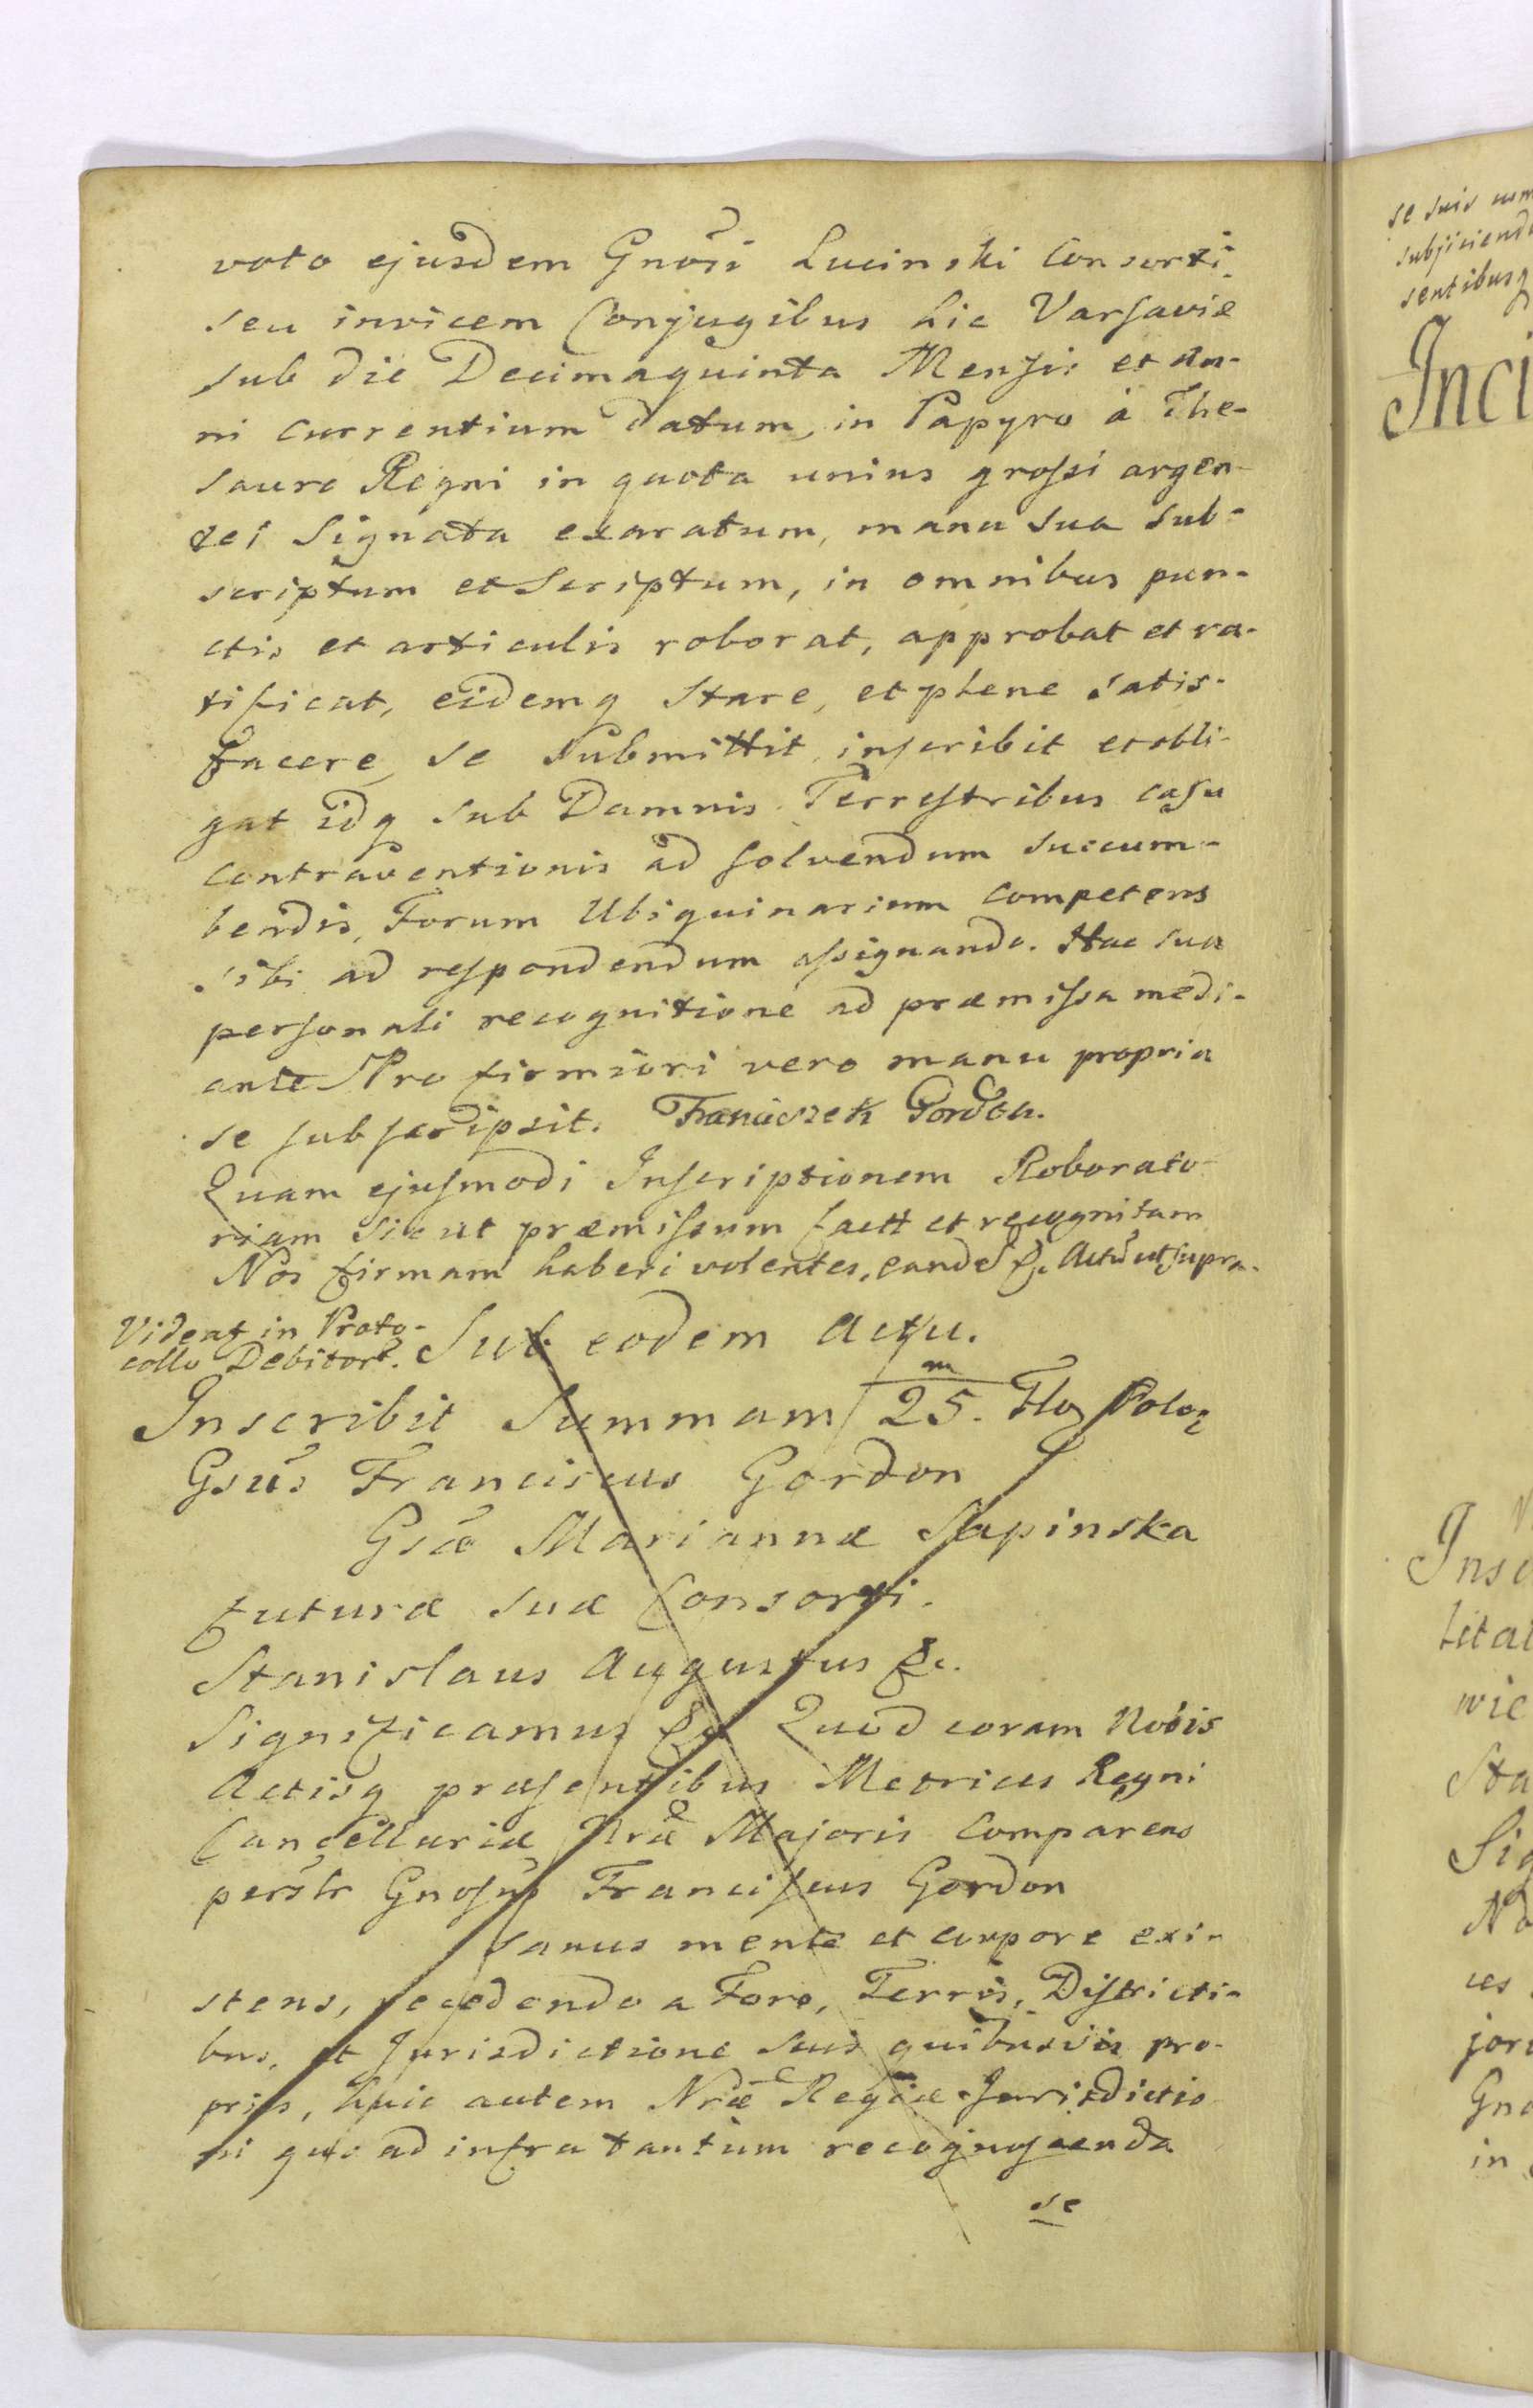 voto ejusdem Gnosi Lucinski Consorti
seu invicem Conjugibus hic Varsaviæ
sub die Decimaquinta Mensis et An-
ni currentium datum, in Papyro à The-
sauro Regni in quota unius grossi argen-
tei Signata exaratum, manu sua sub-
scriptum et Scriptum, in omnibus pun-
ctis et articulis roborat, approbat et ra-
tificat, eidemq Stare, et plene satis-
facere, se submittit, inscribit et obli-
gat idq sub Damnis Terrestribus casu
contraventionis ad solvendum succum-
bendis, Forum Ubiquinarium competens
sibi ad respondendum assignando. Hac sua
personali recognitione ad præmissa medi-
ante Pro firmiori vero manu propria
se subscripsit. Franciszek Gordon.
Quam ejusmodi Inscriptionem Roborato-
riam sicut præmissum factt et recognitam
Nos firmam haberi volentes, eandē &c. Actū ut supra.
Videat in Proto-
collo Debitor.
Sub eodem Actu.
Inscribit Summam 25. m Flo Polo
Gsus Franciscus Gordon
Gsæ Mariannæ Sapinska
futuræ suæ Consorti.
Stanislaus Augustus &c.
Significamus &c Quod coram Nobis
Actisq præsentibus Metrices Regni
Cancellariæ Nræ Majoris Comparens
persr Gnosus Franciscus Gordon
sanus mente et corpore exi-
stens, recedendo a Foro, Terris, Districti-
bus, et Jurisdictione suis quibusvis pro-
priis, huic autem Nræ Regiæ Jurisdictio
ni quo ad infra tantum recognoscenda
se
se suis
subjiciend
sentibusq
Inci
Insc
litat
wic
Sta
Sig
No
ces
jori
Gno
in